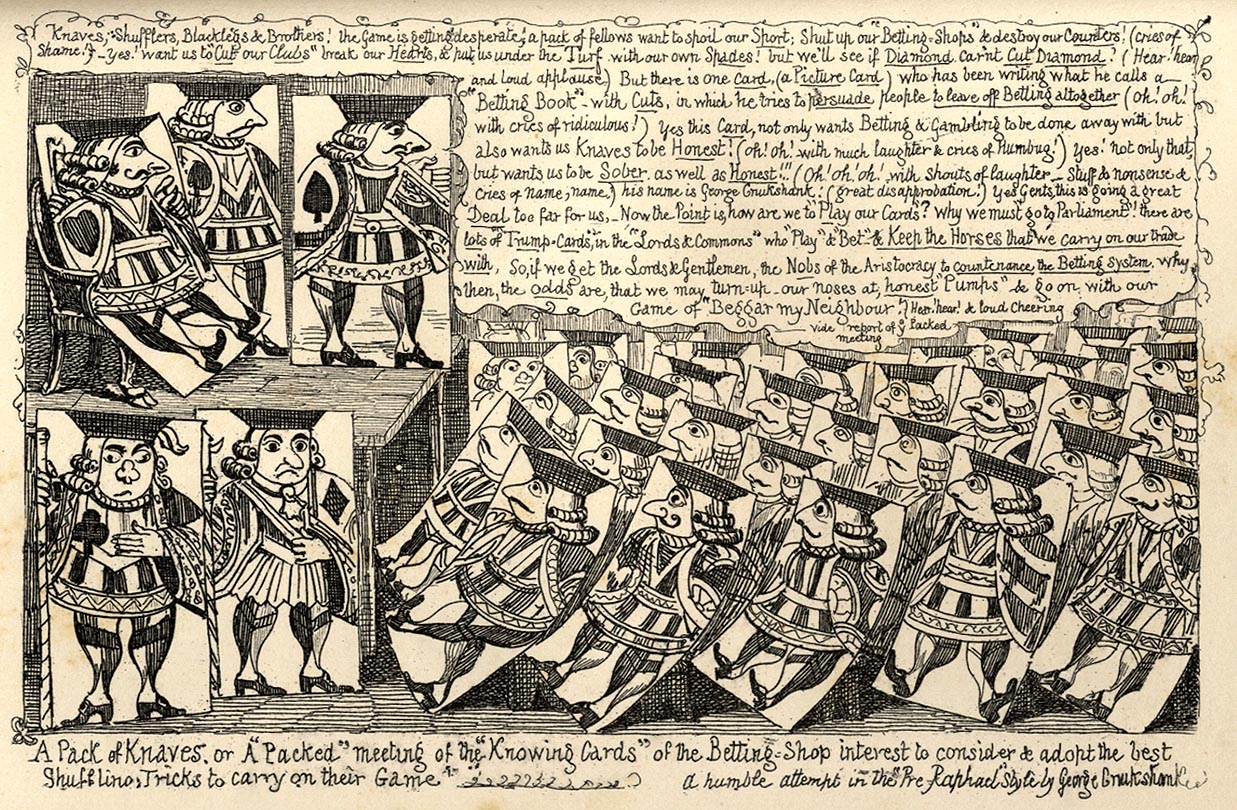 Knaves, Shufflers, Blacklegs & Brothers! the Game is getting desperate, a pack of fellows want to spoil our Sport; Shut up our Betting=Shops & destroy our Counters! (cries of
Shame!) – yes! want us to Cut our Clubs" break our Hearts, & put us under the Turf with our own Spades! but we'll see if Diamond carn't Cut Diamond! (Hear! hear
and loud applause.) But there is one Card, (a Picture Card) who has been writing what he calls a
"Betting Book" – with Cuts, in which he tries to persuade people to leave off Betting altogether (oh! oh!
with cries of ridiculous!) Yes this Card, not only wants Betting & Gambling to be done away with but
also wants us Knaves to be Honest! (oh! oh! with much laughter & cries of Humbug!) Yes! not only that,
but wants us to be Sober as well as Honest!!! (Oh! oh! oh! with shouts of laughter – Stuff & nonsense &
cries of name, name.) his name is George Cruikshank! (great disapprobation!) Yes Gents, this is going a great
Deal too far for us, – Now the Point is, how are we to "Play our Cards"? Why we must "go to Parliament"! there are
lots of "Trump=Cards", in the "Lords & Commons" who "Play" & "Bet" – & Keep the Horses that we carry on our trade
with, So, if we get the Lords & Gentlemen, the Nobs of the Aristocracy to countenance the Betting System, why
then, the odds are, that we may turn-up our noses at, honest "Pumps" & go on with our
Game of "Beggar my Neighbour". Hear! hear! & loud Cheering
vide report of ye Packed
meeting
A Pack of Knaves. or A "Packed" meeting of the "Knowing Cards" of the Betting=Shop interest to consider & adopt the best
Shuffling Tricks to carry on their Game. a humble attempt in the "Pre Raphael" Style by George Cruikshank